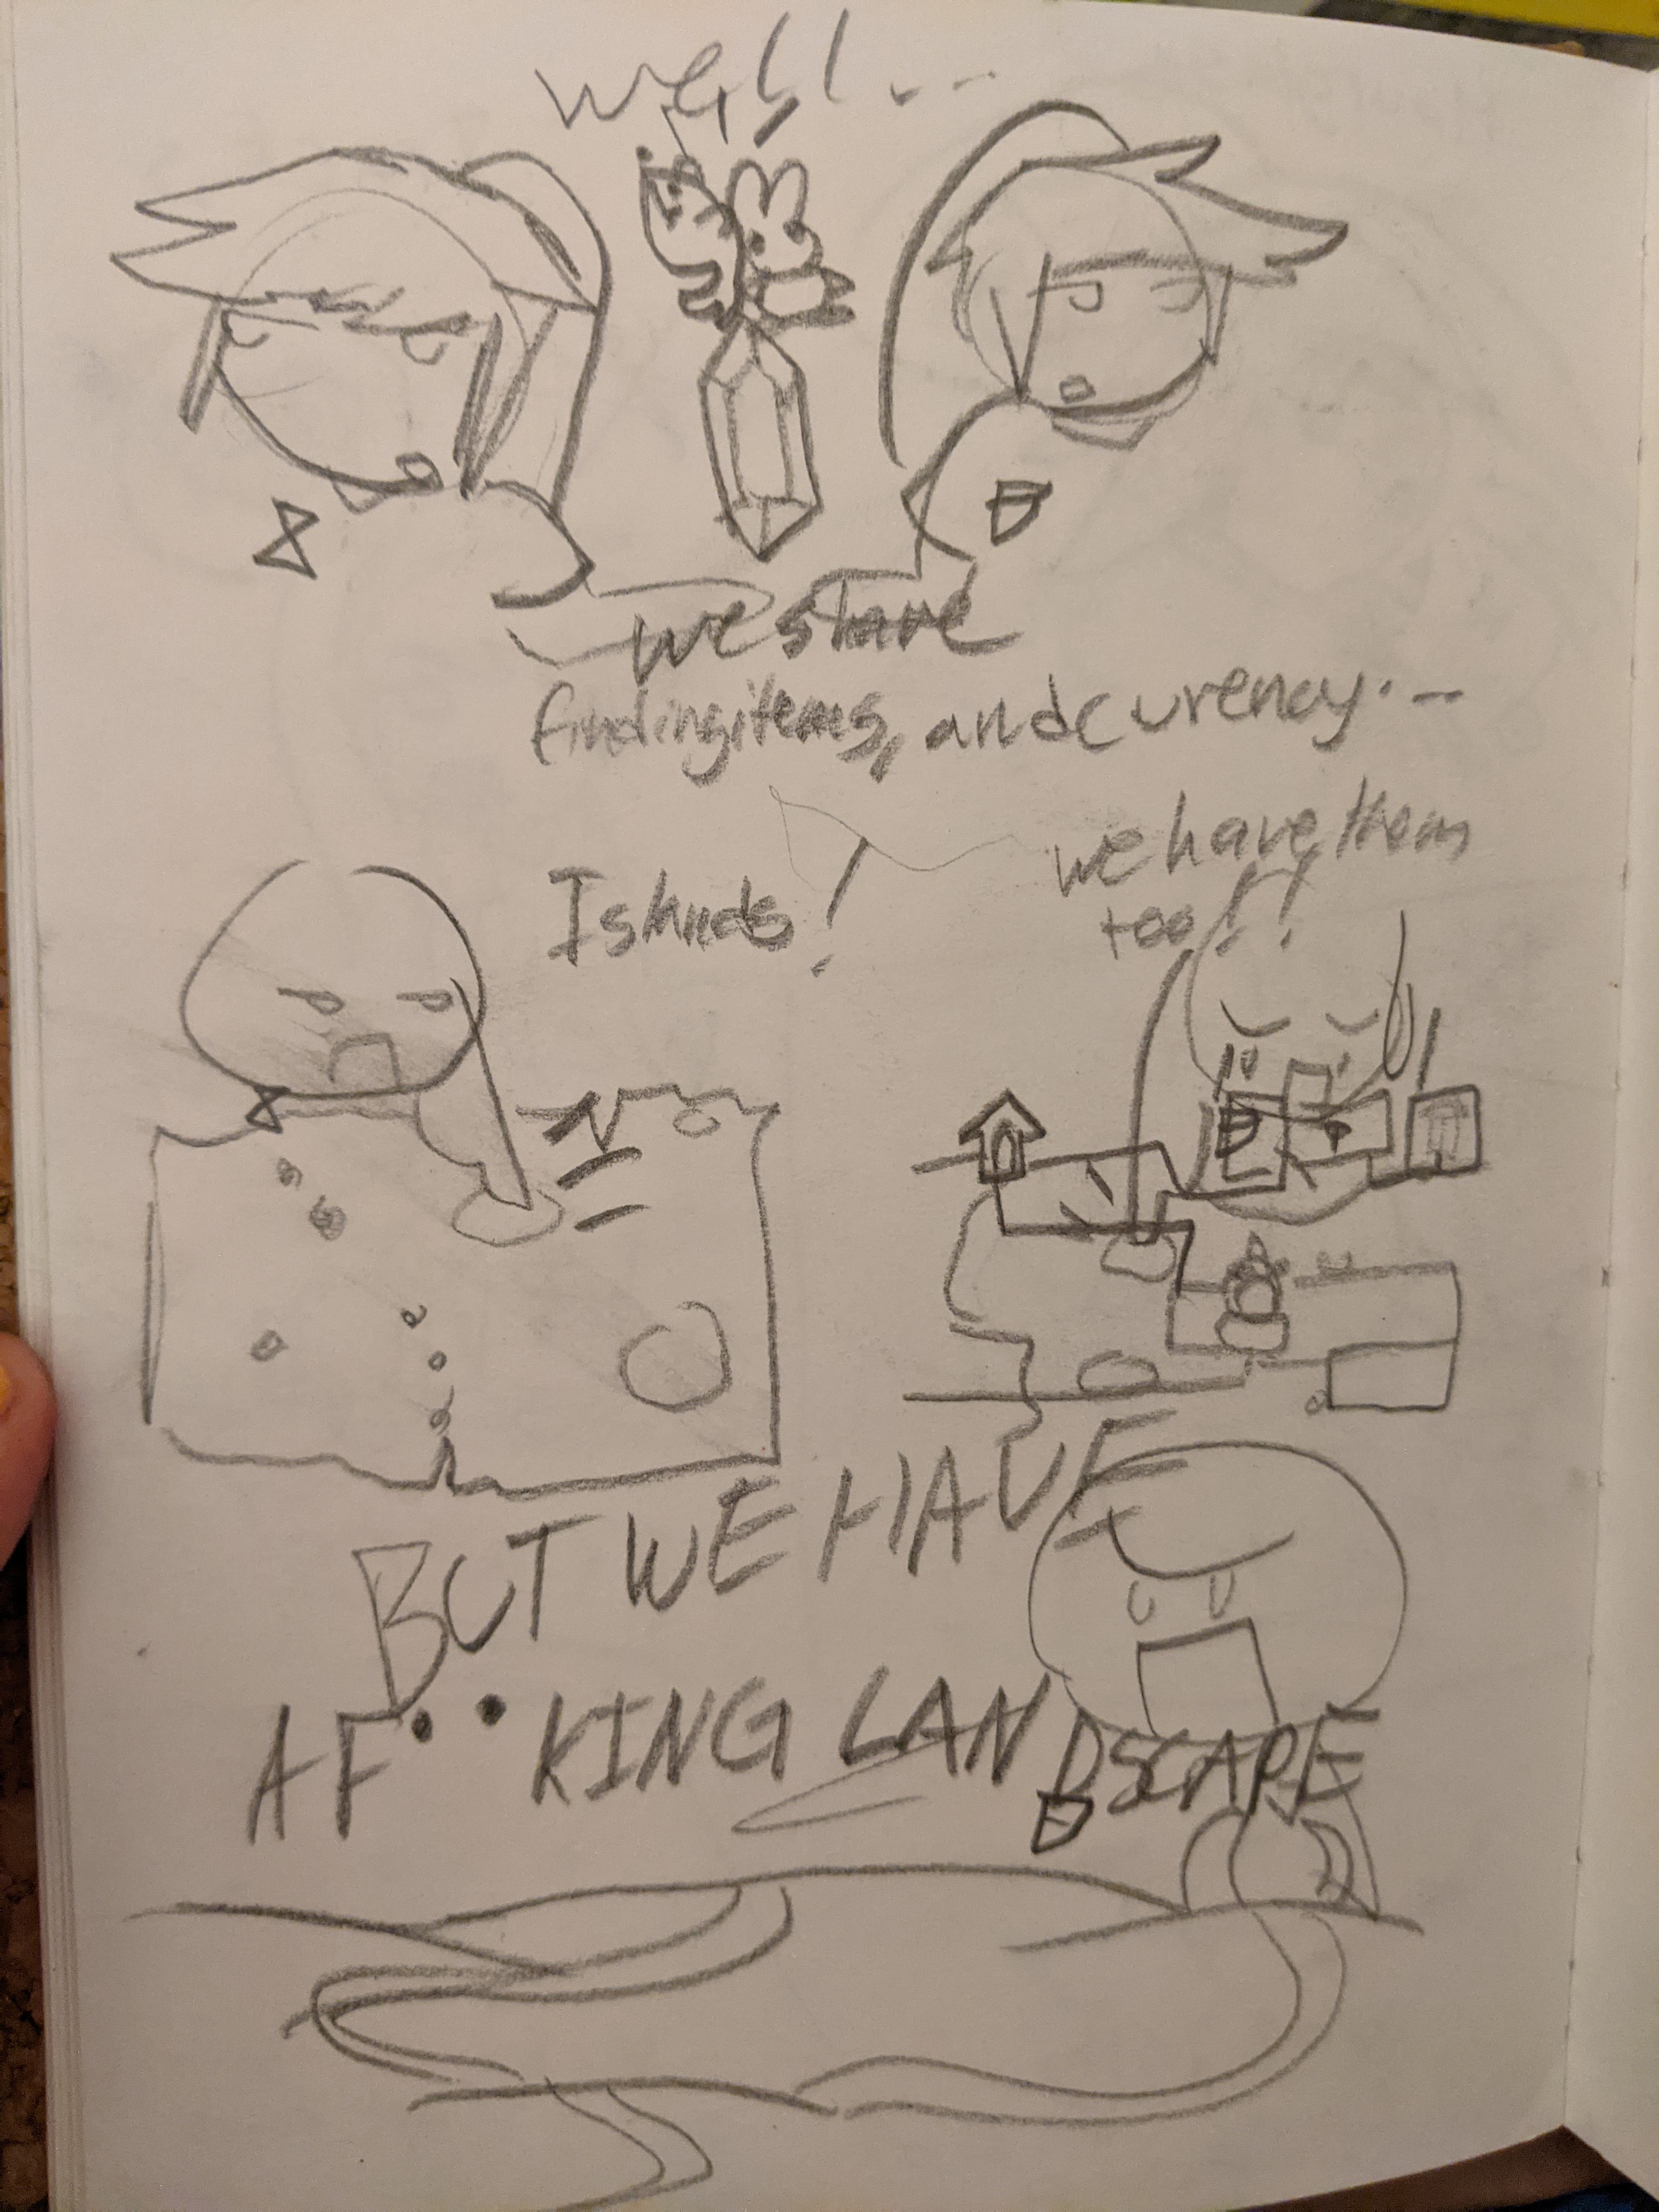 well...
we share
finding items, and curency...
Islands!
we have them
too!!
BUT WE HAVE
A F••KING LANDSCAPE